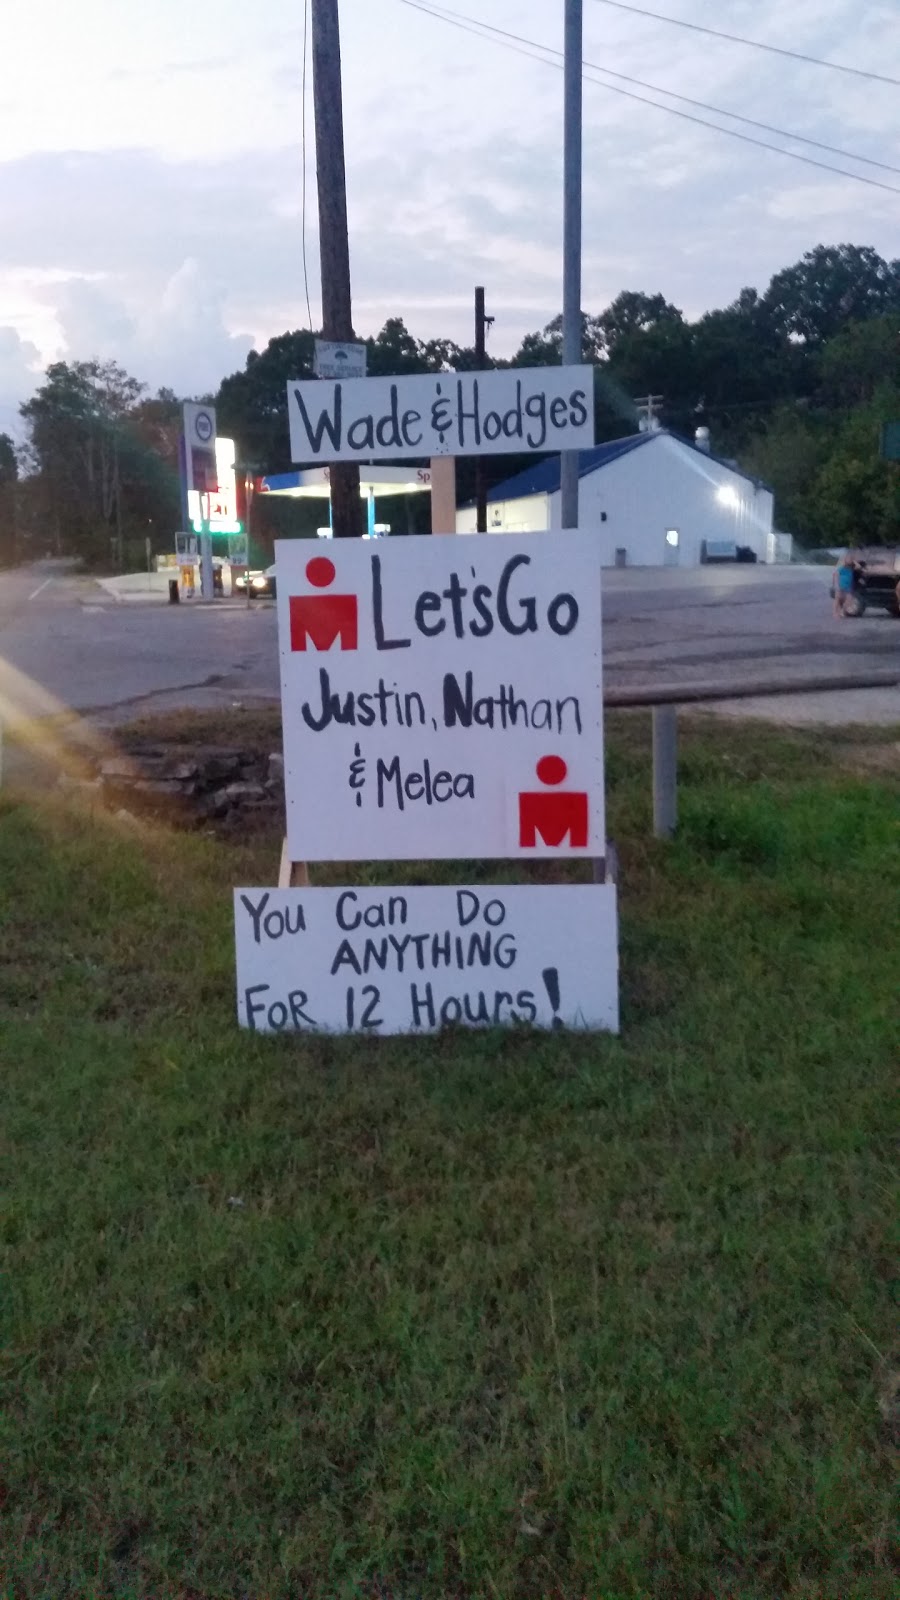 Wade & Hodges
Sp
Let's Go
Justin, Nathan
& Melea
You Can Do
ANYTHING
FOR 12 Hours!